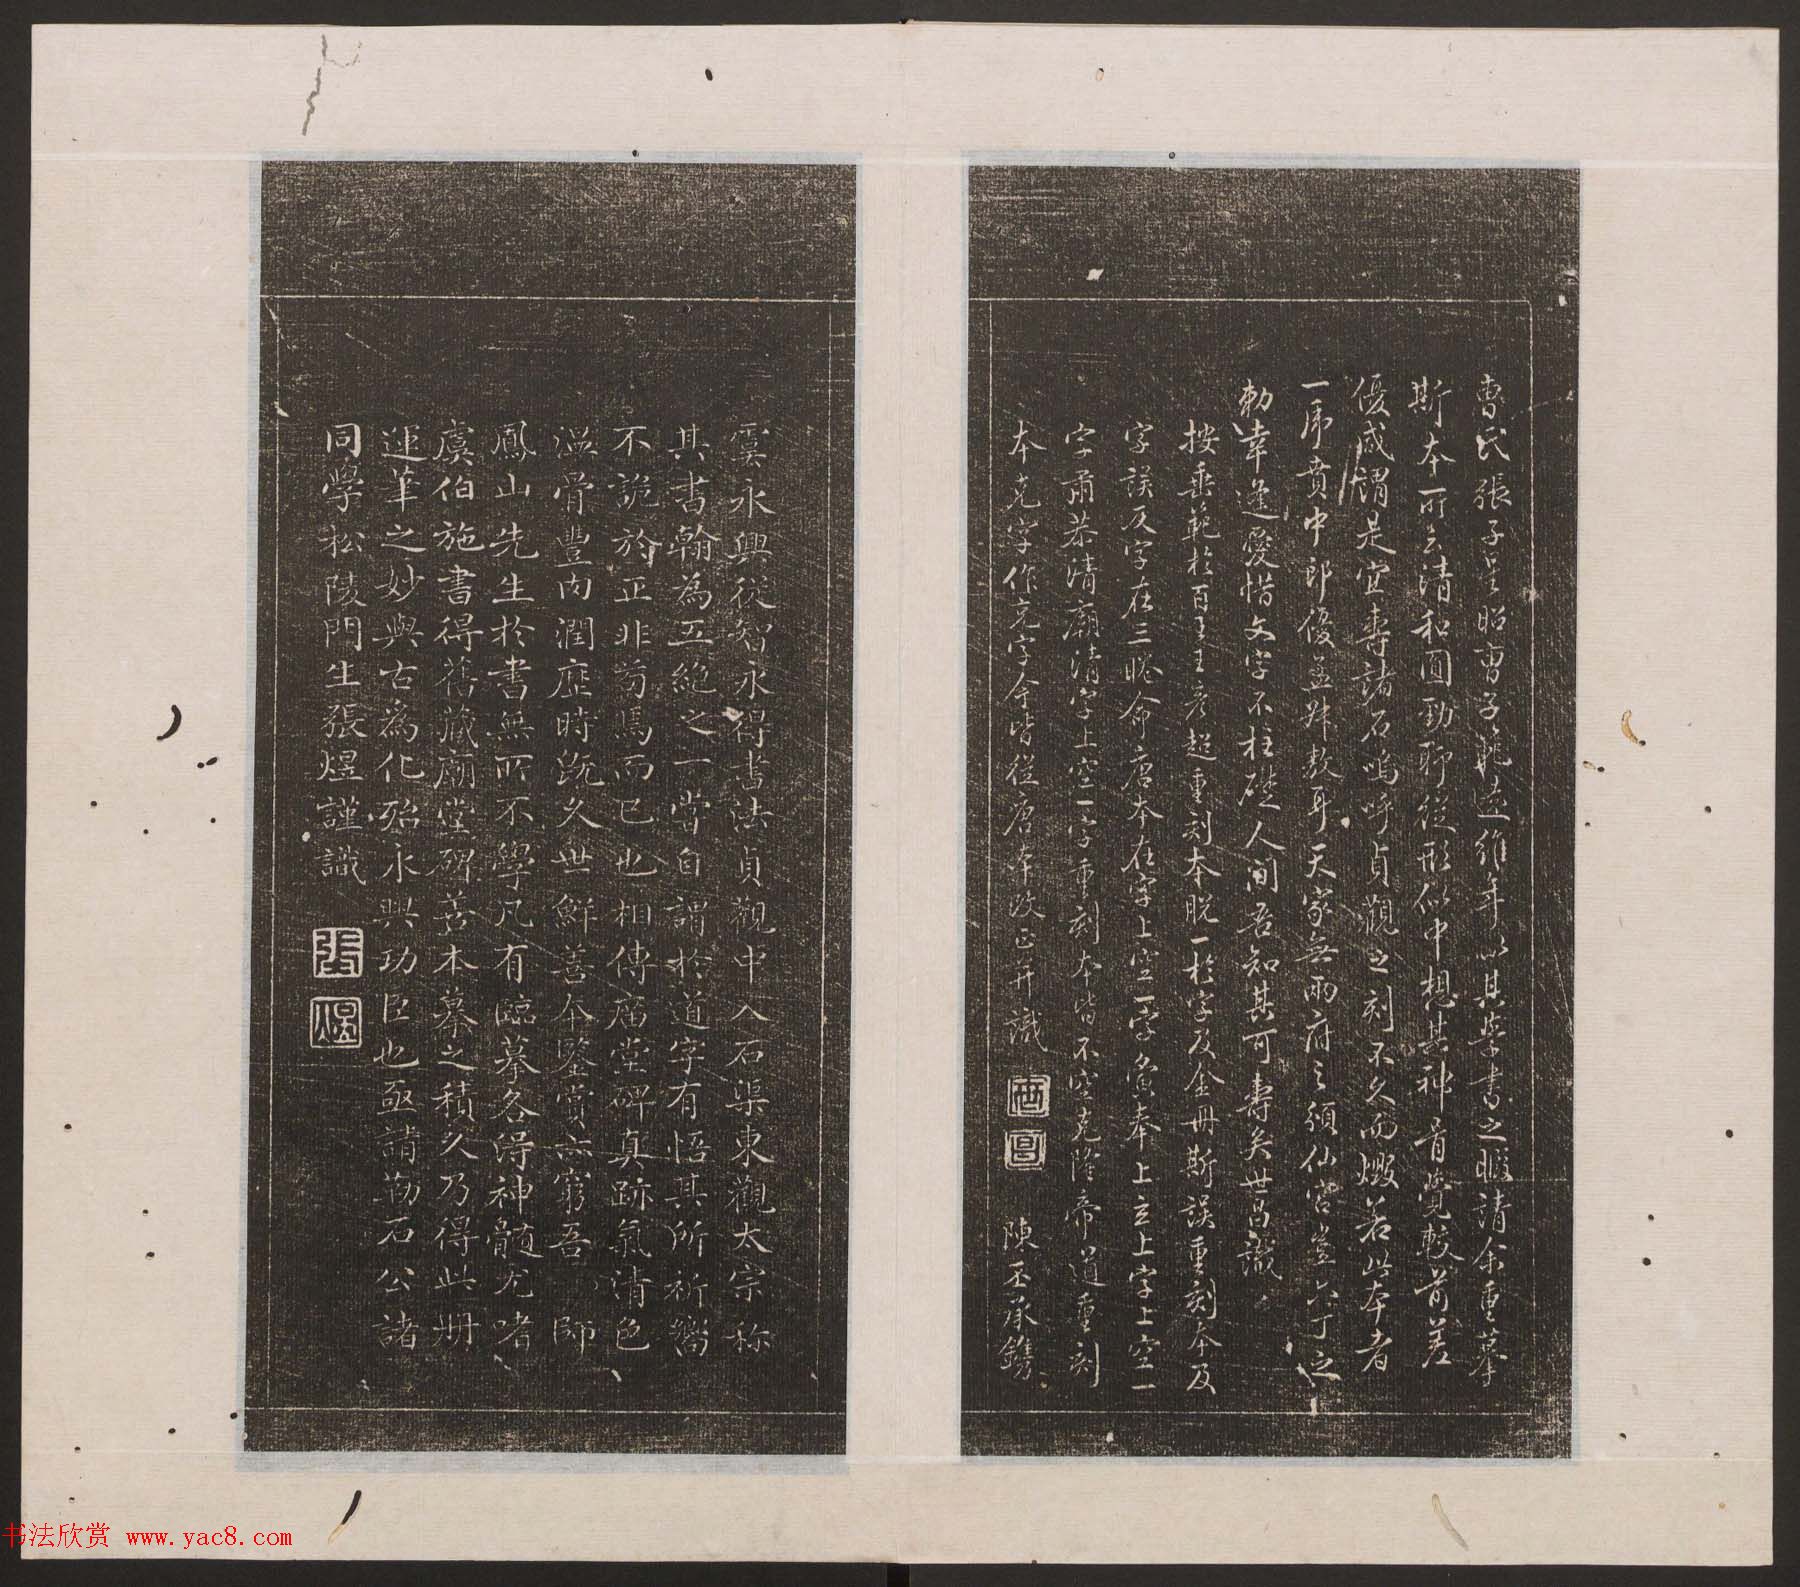 曹氏張子昭曹子遠繼年以其學書之暇請余重摹
斯本所云清和圓勁耶從形似中想其神骨覺較前差
優咸謂是宜壽諸石嗚呼貞觀之刻不久而燬若此本者
一虎賁中郎優孟叔敖耳天家無兩府之頒仙宮並六丁之
勅幸逢愛惜文字不柱礎人間吾知其可壽矣世昌識
按垂範於百王王彥超重刻本脫一於字及金冊斯誤重刻本及
字誤反字在三眺命唐本在字上空一字奠奉上立上字上空一
字肅恭清廟清字上空一字重刻本皆不空克隆帝道重刻
本克字作充字今皆從唐本改正并識 陳丕承鐫
雲永興從智永得書法貞觀中入石渠東觀太宗稱
其書翰為五絕之一嘗自謂於道字有悟其所祈嚮
不詭於正非苟焉而已也相傳廟堂碑真跡氣清色
溫骨豐肉潤歷時既久世鮮善本鑒賞亦窮吾師
鳳山先生於書無所不學凡有臨摹各得神髓尤嗜
虞伯施書得舊藏廟堂碑善本摹之積久乃得此冊
運筆之妙與古為化殆永興功臣也亟請勒石公諸
同學松陵門生張煜謹識
張
煜
书法欣赏 www.yac8.com